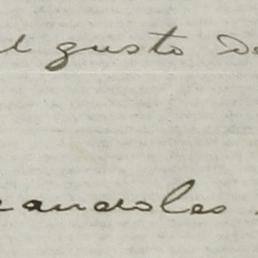 el gusto de
eandoles